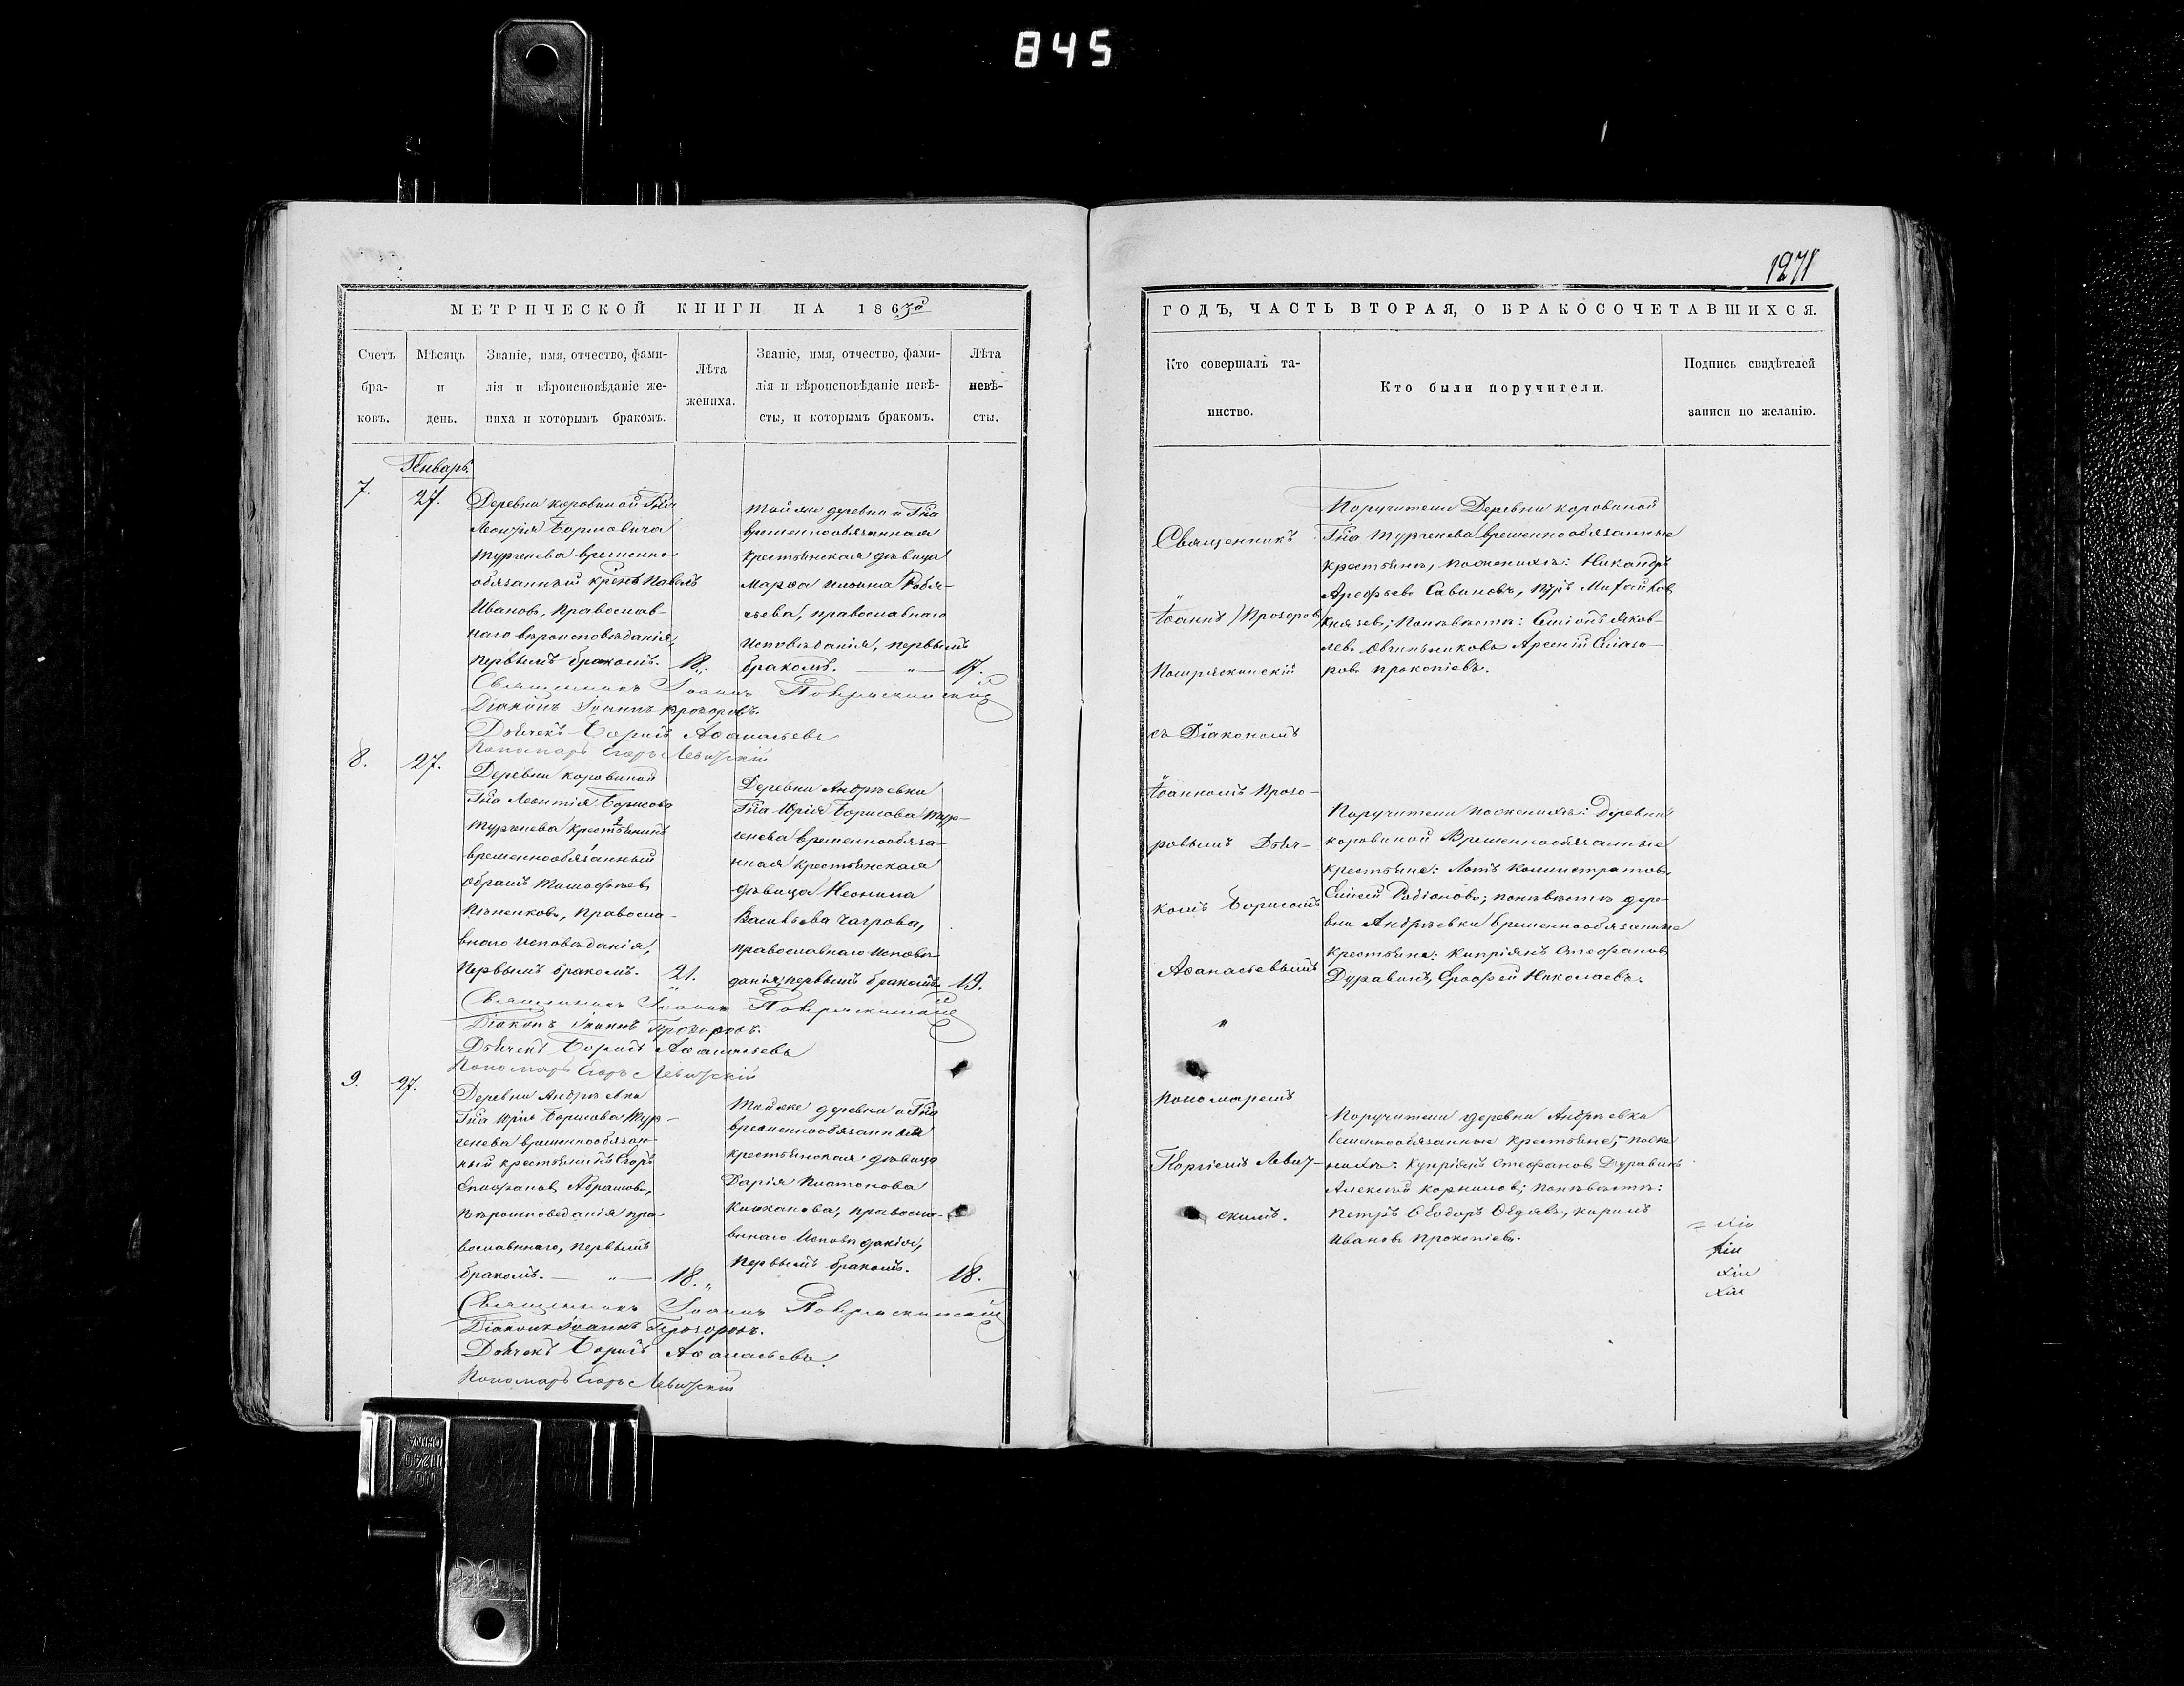 845
1271
МЕТРИЧЕСКОЙ КНИГИ НА 1863й
Счетъ бра-ковъ.
Мѣсяцъ и день.
Званіе, имя, отчество, фами-
лія и вѣроисповѣданіе же-
ниха и которымъ бракомъ.
Лѣта жениха.
Званіе, имя, отчество, фами-
лія и вѣроисповѣданіе невѣ-
сты, и которымъ бракомъ.
Лѣта невѣ-сты.
Генварь.
7.
27.
Деревни Коровиной Гна
Леонтія Борисовича
Тургенева временно-
обязанный крснъ Павелъ
Ивановъ, Православ-
наго вѣроисповѣданія,
первымъ бракомъ.
18.
Той же деревни и Гна
временнообязанная
крестьянская дѣвица
Марѳа
православнаго
исповѣданія, первымъ
бракомъ. — „ —
17.
Священникъ Іоаннъ
Діаконъ Іоаннъ Прозоровъ.
Дьячекъ Борисъ Аѳанасьевъ
Пономарь Егоръ Левитскій
8.
27.
Деревни Коровиной
Гна Леонтія Борисова
Тургенева крестьянинъ
временнообязанный
православ-
внаго исповѣданія,
первымъ бракомъ.
21.
Деревни Андрѣевки
Гна Юрія Борисова Тур-
генева временнообяза-
нная крестьянская
дѣвица Неонила
Васильева
православнаго исповѣ-
данія, первымъ бракомъ
19.
Священникъ Іоаннъ
Діаконъ Іоаннъ Прозоровъ.
Дьячекъ Борисъ Аѳанасьевъ
Пономарь Егоръ Левитскій
9.
27.
Деревни Андрѣевки
Гна Юрія Борисова Тур-
генева временнообязан-
ный крестьянинъ Егоръ
Абрамовъ,
вѣроисповеданія пра-
вославннаго, первымъ
бракомъ. — „ —
18.
Той же деревни и Гна
временнообязанная
крестьянская дѣвица
Дарія Платонова
правосла-
внаго исповѣданія,
первымъ бракомъ.
18.
Священникъ Іоаннъ
Діаконъ Іоаннъ Прозоровъ.
Дьячекъ Борисъ Аѳанасьевъ.
Пономарь Егоръ Левитскій
ГОДЪ, ЧАСТЬ ВТОРАЯ, О БРАКОСОЧЕТАВШИХСЯ.
Кто совершалъ та-
инство.
Кто были поручители.
Подпись свидѣтелей
записи по желанію.
Священникъ
Іоаннъ
съ Діакономъ
Іоанномъ Прозо-
ровымъ Дьяч-
комъ Борисомъ
Аѳанасьевымъ
„
Пономаремъ
Георгіемъ Левит-
скимъ.
Поручители Деревни Коровиной
Гна Тургенева временнообязанные
крестьяне, по женихѣ: Никандръ
Арефьевъ Савиновъ, Петръ Михайловъ
Князевъ; по невѣстѣ: Симіонъ Яков-
левъ Овчинниковъ Арсеній Елиза-
ровъ Прокопіевъ.
Поручители по женихѣ: Деревни
Коровиной Временнообязанные
крестьяне:
по невѣстѣ дере-
вни Андрѣевки временнообязанные
крестьяне: Кипріянъ Стефановъ
Дуравинъ, Ерофей Николаевъ.
Поручители деревни Андрѣевки
крестьяне, по же-
нихѣ: Купріянъ Стефановъ Дуравинъ
Алексѣй Корниловъ; по невѣстѣ:
Петръ Ѳеодоръ
Ивановъ Прокопіевъ.